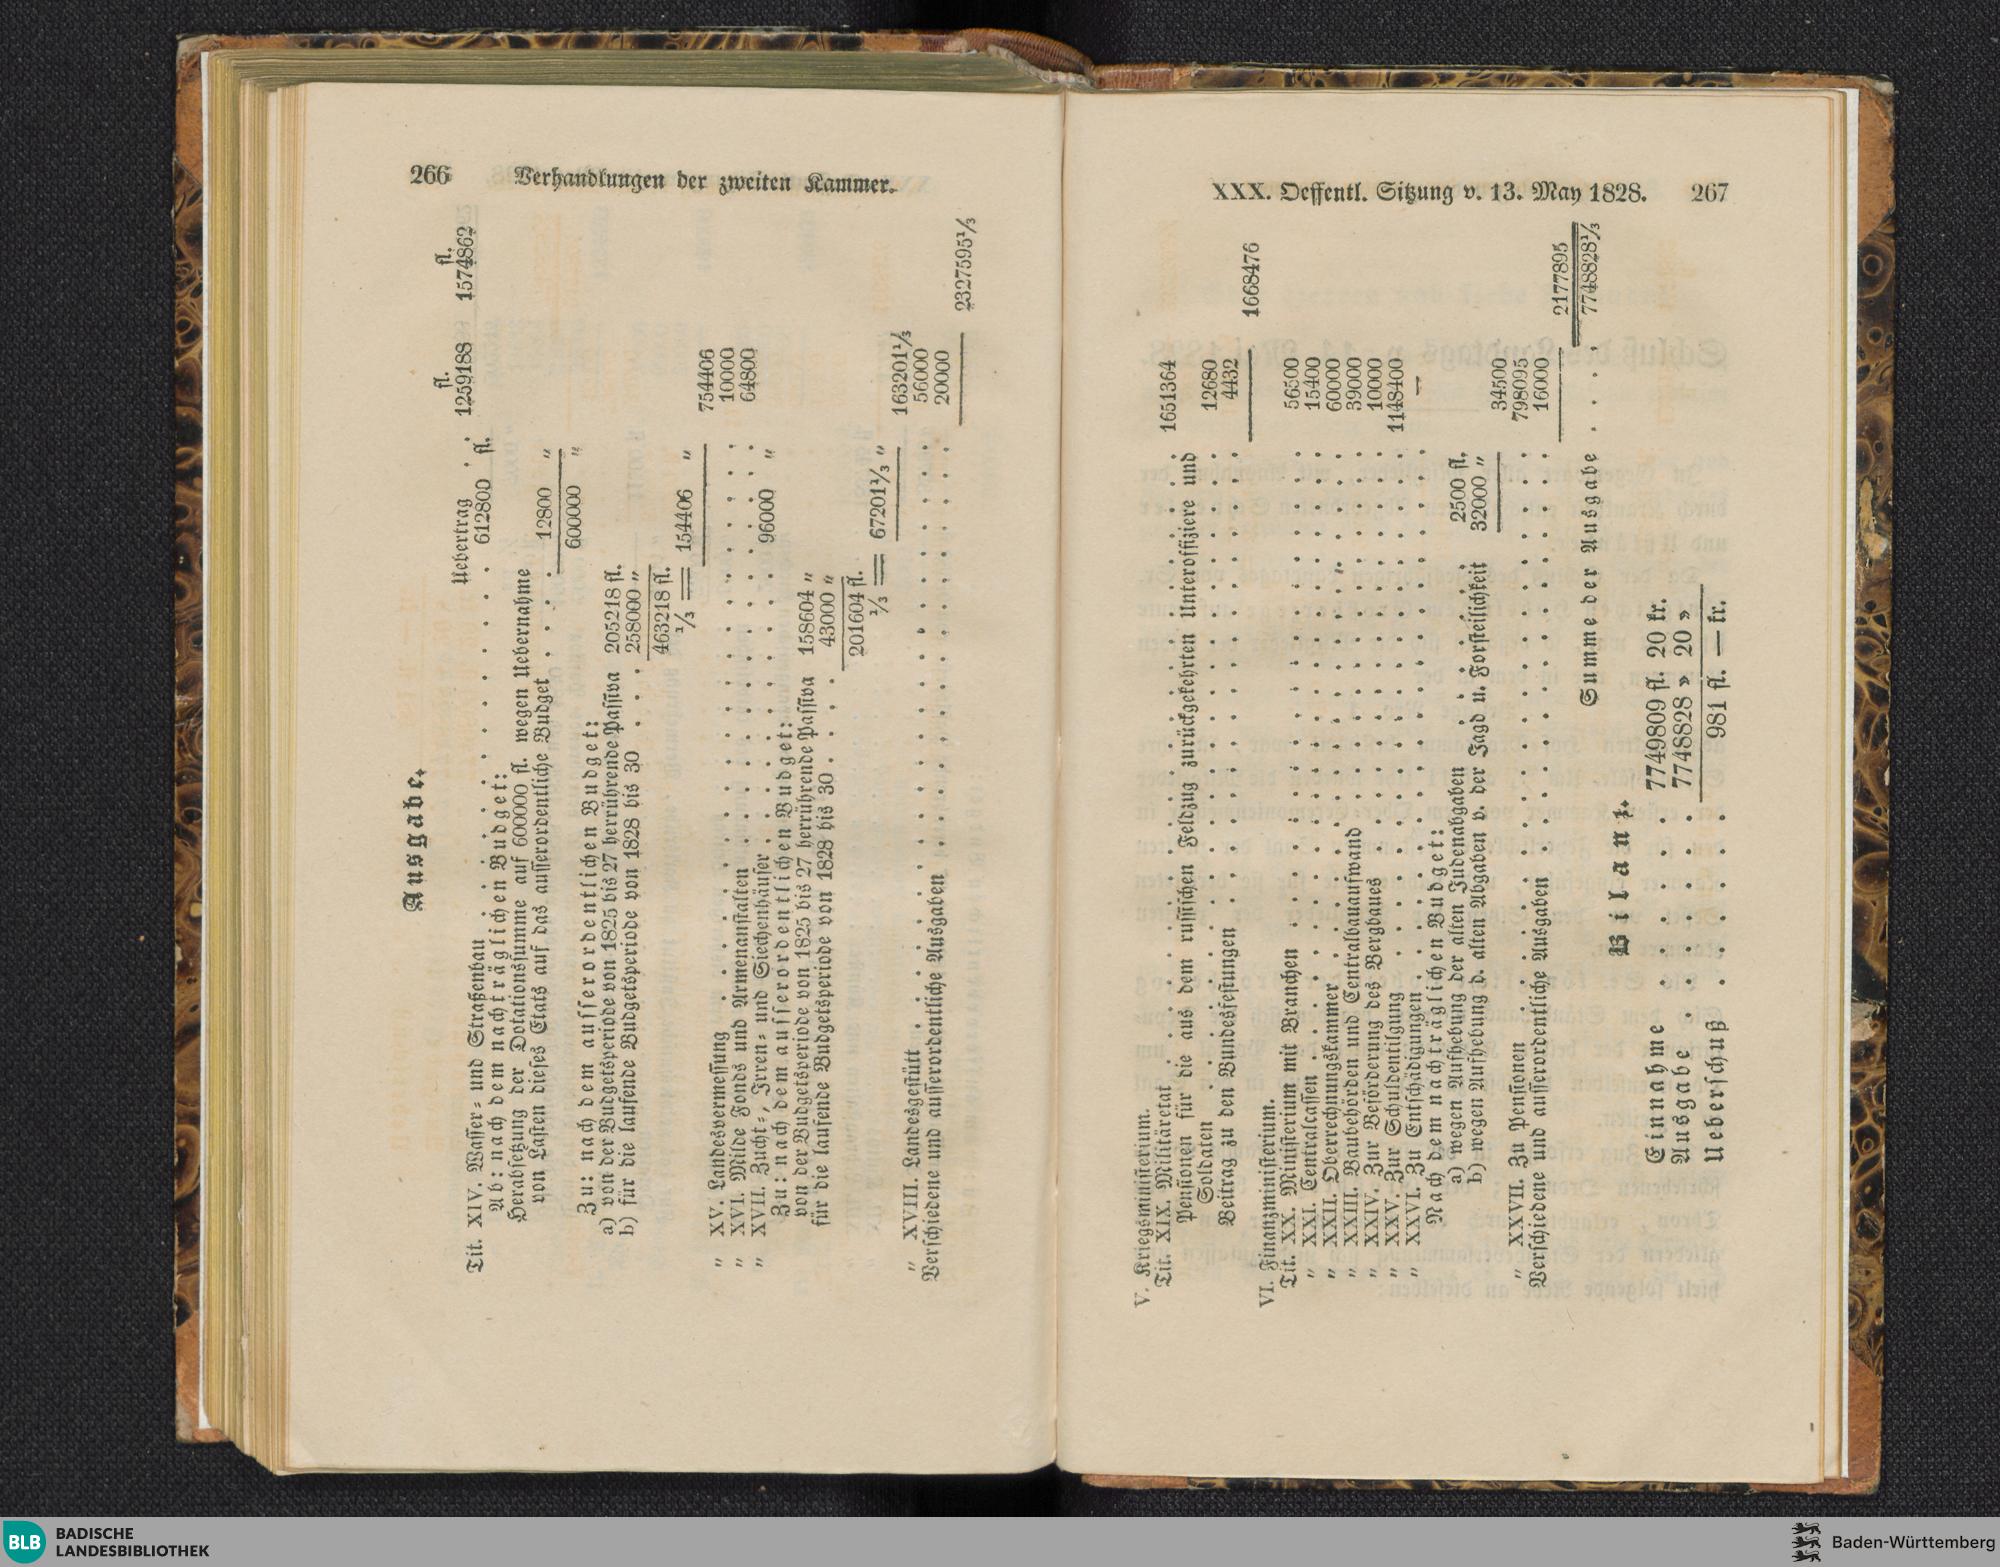 266 Verhandlungen der zweiten Kammer.
Ausgabe.
fl. fl.
Uebertrag . . 1259188 1574862
Tit. XIV. Wasser- und Straßenbau . . . . . . . 612800 fl.
Ab: nach dem nachträglichen Budget:
Herabsetzung der Dotationssumme auf 600000 fl. wegen Uebernahme
von Lasten dieses Etats auf das ausserordentliche Budget . . . 12800 „
600000 „
Zu: nach dem ausserordentlichen Budget:
a) von der Budgetsperiode von 1825 bis 27 herrührende Passiva 205218 fl.
b) für die laufende Budgetsperiode von 1828 bis 30 . . . 258000 „
463218 fl.
1/3 = 154406 „
754406
„ XV. Landesvermessung . . . . . . . . . . . 10000
„ XVI. Milde Fonds und Armenanstalten . . . . . . . . . 64800
„ XVII. Zucht-, Irren- und Siechenhäuser . . . . . . . 96000 „
Zu: nach dem ausserordentlichen Budget:
von der Budgetsperiode von 1825 bis 27 herrührende Passiva 158604 „
für die laufende Budgetsperiode von 1828 bis 30 . . . 43000 „
201604 fl.
1/3 = 67201 1/3 „
163201 1/3
„ XVIII. Landesgestütt . . . . . . . . . . . 56000
Verschiedene und ausserordentliche Ausgaben . . . . . . . . . 20000
2327595 1/3
XXX. Oeffentl. Sitzung v. 13. May 1828. 267
V. Kriegsministerium.
Tit. XIX. Militäretat . . . . . . . . . . . . . 1651364
Pensionen für die aus dem russischen Feldzug zurückgekehrten Unteroffiziere und
Soldaten . . . . . . . . . . . . . 12680
Beitrag zu den Bundesfestungen . . . . . . . . . . 4432
1668476
VI. Finanzministerium.
Tit. XX. Ministerium mit Branchen . . . . . . . . . . 56500
„ XXI. Centralcassen . . . . . . . . . . . . 15400
„ XXII. Oberrechnungskammer . . . . . . . . . . . 60000
„ XXIII. Baubehörden und Centralbauaufwand . . . . . . . . 39000
„ XXIV. Zur Beförderung des Bergbaues . . . . . . . . . 10000
„ XXV. Zur Schuldentilgung . . . . . . . . . . . 1148400
„ XXVI. Zu Entschädigungen . . . . . . . . . . . —
Nach dem nachträglichen Budget:
a) wegen Aufhebung der alten Judenabgaben . . . . 2500 fl.
b) wegen Aufhebung d. alten Abgaben v. der Jagd u. Forsteilichkeit 32000 „
34500
„ XXVII. Zu Pensionen . . . . . . . . . . . . 798095
Verschiedene und ausserordentliche Ausgaben . . . . . . . . . 16000
2177895
Summe der Ausgabe . . . . 7748828 1/3
Bilanz.
Einnahme . . . . . 7749809 fl. 20 kr.
Ausgabe . . . . . 7748828 » 20 »
Ueberschuß . . . . . 981 fl. — kr.
BLB BADISCHE
LANDESBIBLIOTHEK
Baden-Württemberg